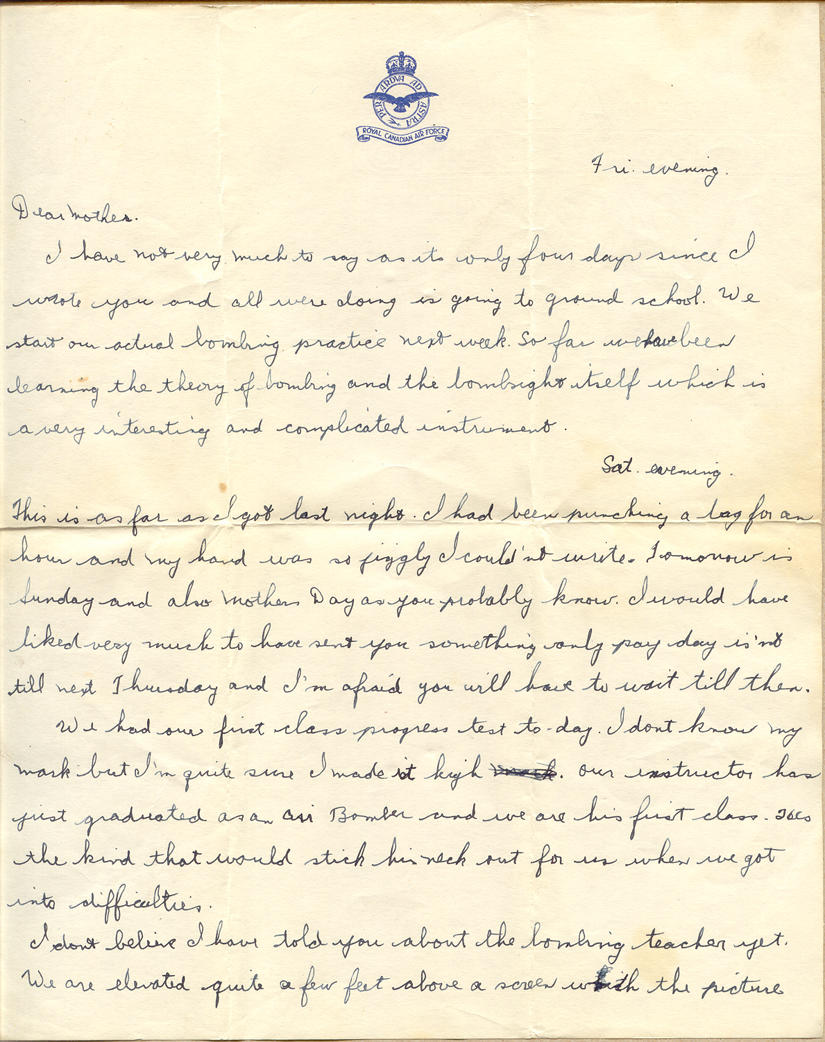 PER ARDVA AD ASTRA
ROYAL CANADIAN AIR FORCE
Fri. evening.
Dear Mother.
I have not very much to say as its only four days since I
wrote you and all were doing is going to ground school. We
start our actual bombing practice next week. So far we have been
learning the theory of bombing and the bombsight itself which is
a very interesting and complicated instrument.
Sat. evening.
This is as far as I got last night. I had been punching a bag for an
hour and my hand was so jiggly I could'nt write. Tomorrow is
Sunday and also Mothers Day as you probably know. I would have
liked very much to have sent you something only pay day is'nt
till next Thursday and I'm afraid you will have to wait till then.
We had our first class progress test to-day. I dont know my
mark but I'm quite sure I made it high mark. Our instructor has
just graduated as an Air Bomber and we are his first class. Hes
the kind that would stick his neck out for us when we got
into difficulties.
I dont believe I have told you about the bombing teacher yet.
We are elevated quite a few feet above a screen with the picture